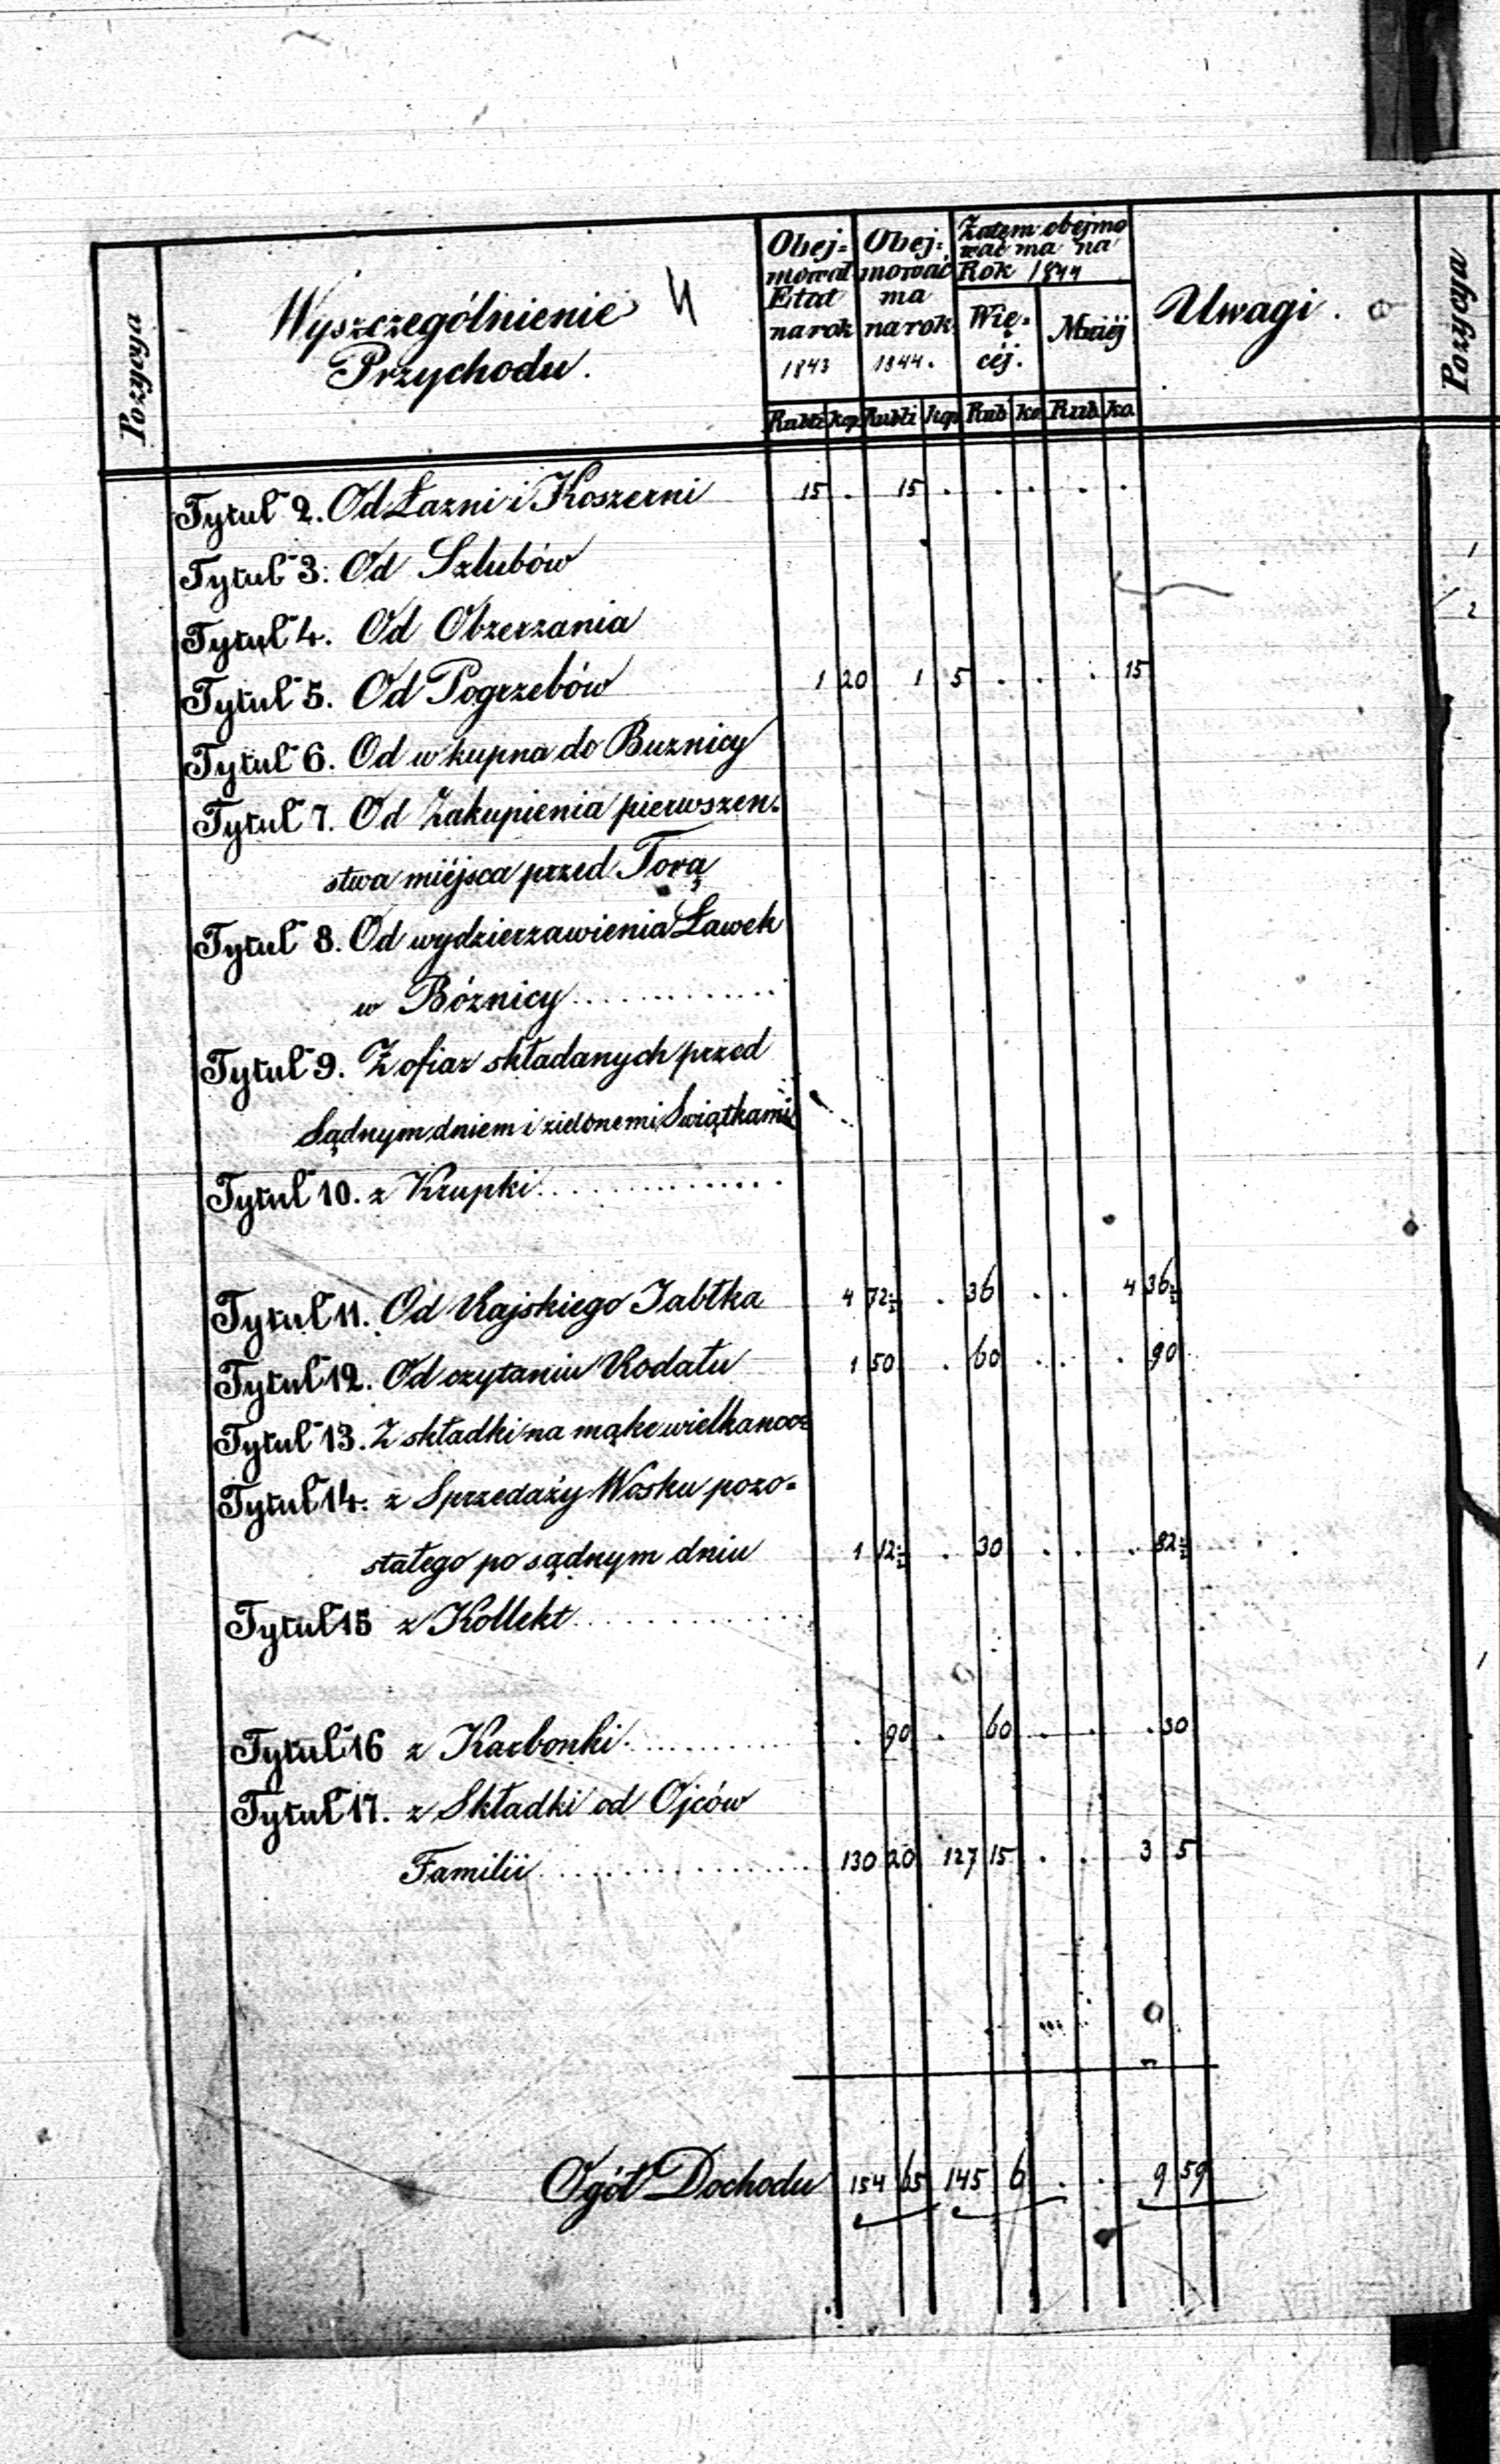 Pozycya
Wyszczególnienie
Przychodu.
4
Obej=
mował
Etat
na rok
1843
Obej=
mować
ma
na rok
1844.
Zatem obejmo
wać ma na
Rok 1844
Wię=
céj.
Mniéj
Uwagi.
Pozycya
Rubli kop Rubli kop Rub ko Rub ko
Tytuł 2. Od Łazni i Koszerni 15 . 15 . . . . .
Tytuł 3. Od Szlubów
1
Tytuł 4. Od Obzerzania
2
Tytuł 5. Od Pogrzebów 1 20 1 5 . . . 15
Tytuł 6. Od wkupna do Buznicy
Tytuł 7. Od Zakupienia pierwszen=
stwa miéjsca przed Torą
Tytuł 8. Od wydzierzawienia Ławek
w Bóznicy.............
Tytuł 9. Z ofiar składanych przed
Sądnym dniem i zielonemi Swiątkami
Tytuł 10. z Krupki...............
Tytuł 11. Od Rajskiego Jabłka 4 72½ . 36 . . 4 36½
Tytuł 12. Od czytaniu Rodału 1 50 . 60 . . . 90
Tytuł 13. Z składki na mąke wielkanoc
Tytuł 14. z Sprzedaży Wosku pozo=
stałego po sądnym dniu 1 12½ . 30 . . . 82½
Tytuł 15 z Kollekt............
1
Tytuł 16 z Karbonki............ . 90 . 60 . . . 30
Tytuł 17. z Składki od Ojców
Familii................. 130 20 127 15 . . 3 5
Ogół Dochodu 154 65 145 6 . . 9 59